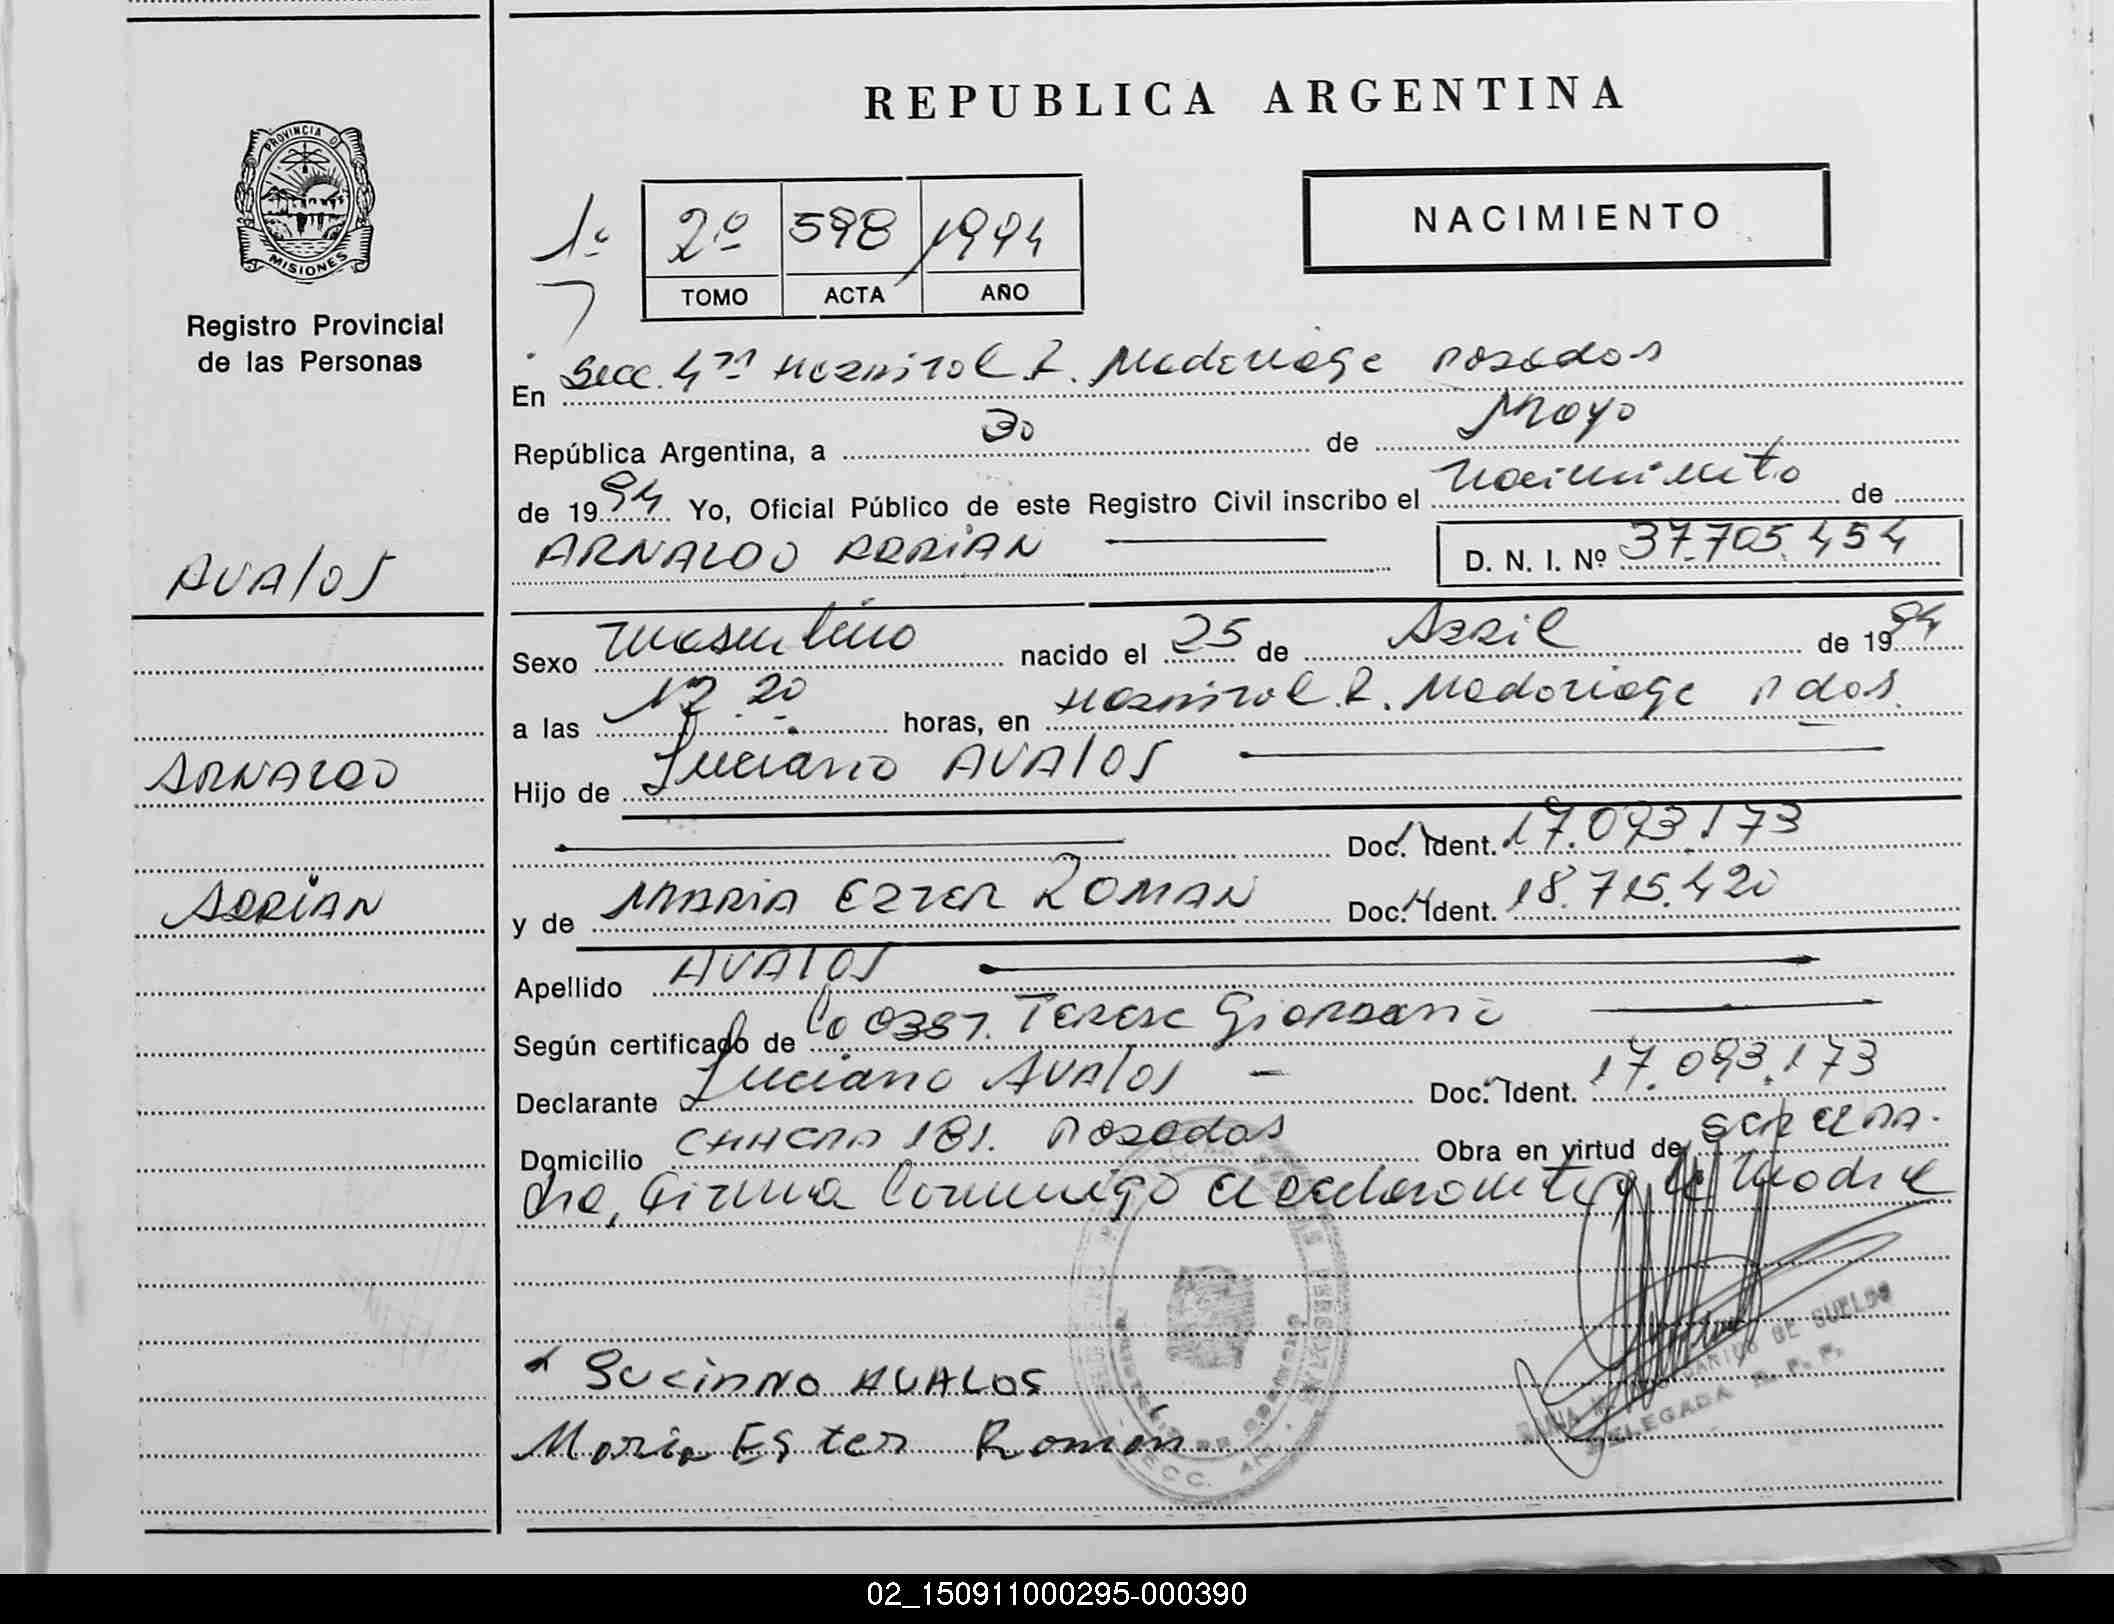 PROVINCIA DE
MISIONES
Registro Provincial
de las Personas
AVAlOS
ARNALDO
ADRIAN
REPUBLICA ARGENTINA
1º 2º 598 1994
TOMO ACTA AÑO
NACIMIENTO
En Secc. 4ta Hospital R. Madariaga Posadas
República Argentina, a 30 de Mayo
de 1994 Yo, Oficial Público de este Registro Civil inscribo el nacimiento de
ARNALDO ADRIAN D. N. I. Nº 37.705.454
Sexo masculino nacido el 25 de Abril de 1994
a las 12.20 horas, en Hospital R. Madariaga Pdas.
Hijo de Luciano AVAlOS
Doc. Ident. 17.093.173
y de MARIA ESTER ROMAN Doc. Ident. 18.715.420
Apellido AVAlOS
Según certificado de Teresa Giordano
Declarante Luciano AVAlOS Doc. Ident. 17.093.173
Domicilio CHACRA 181. Posadas Obra en virtud de ser el pa-
dre, firma conmigo el declarante y la madre
LUCIANO AVALOS
Maria Ester Román
DE SUELDO
DELEGADA R. P. P.
02_150911000295-000390